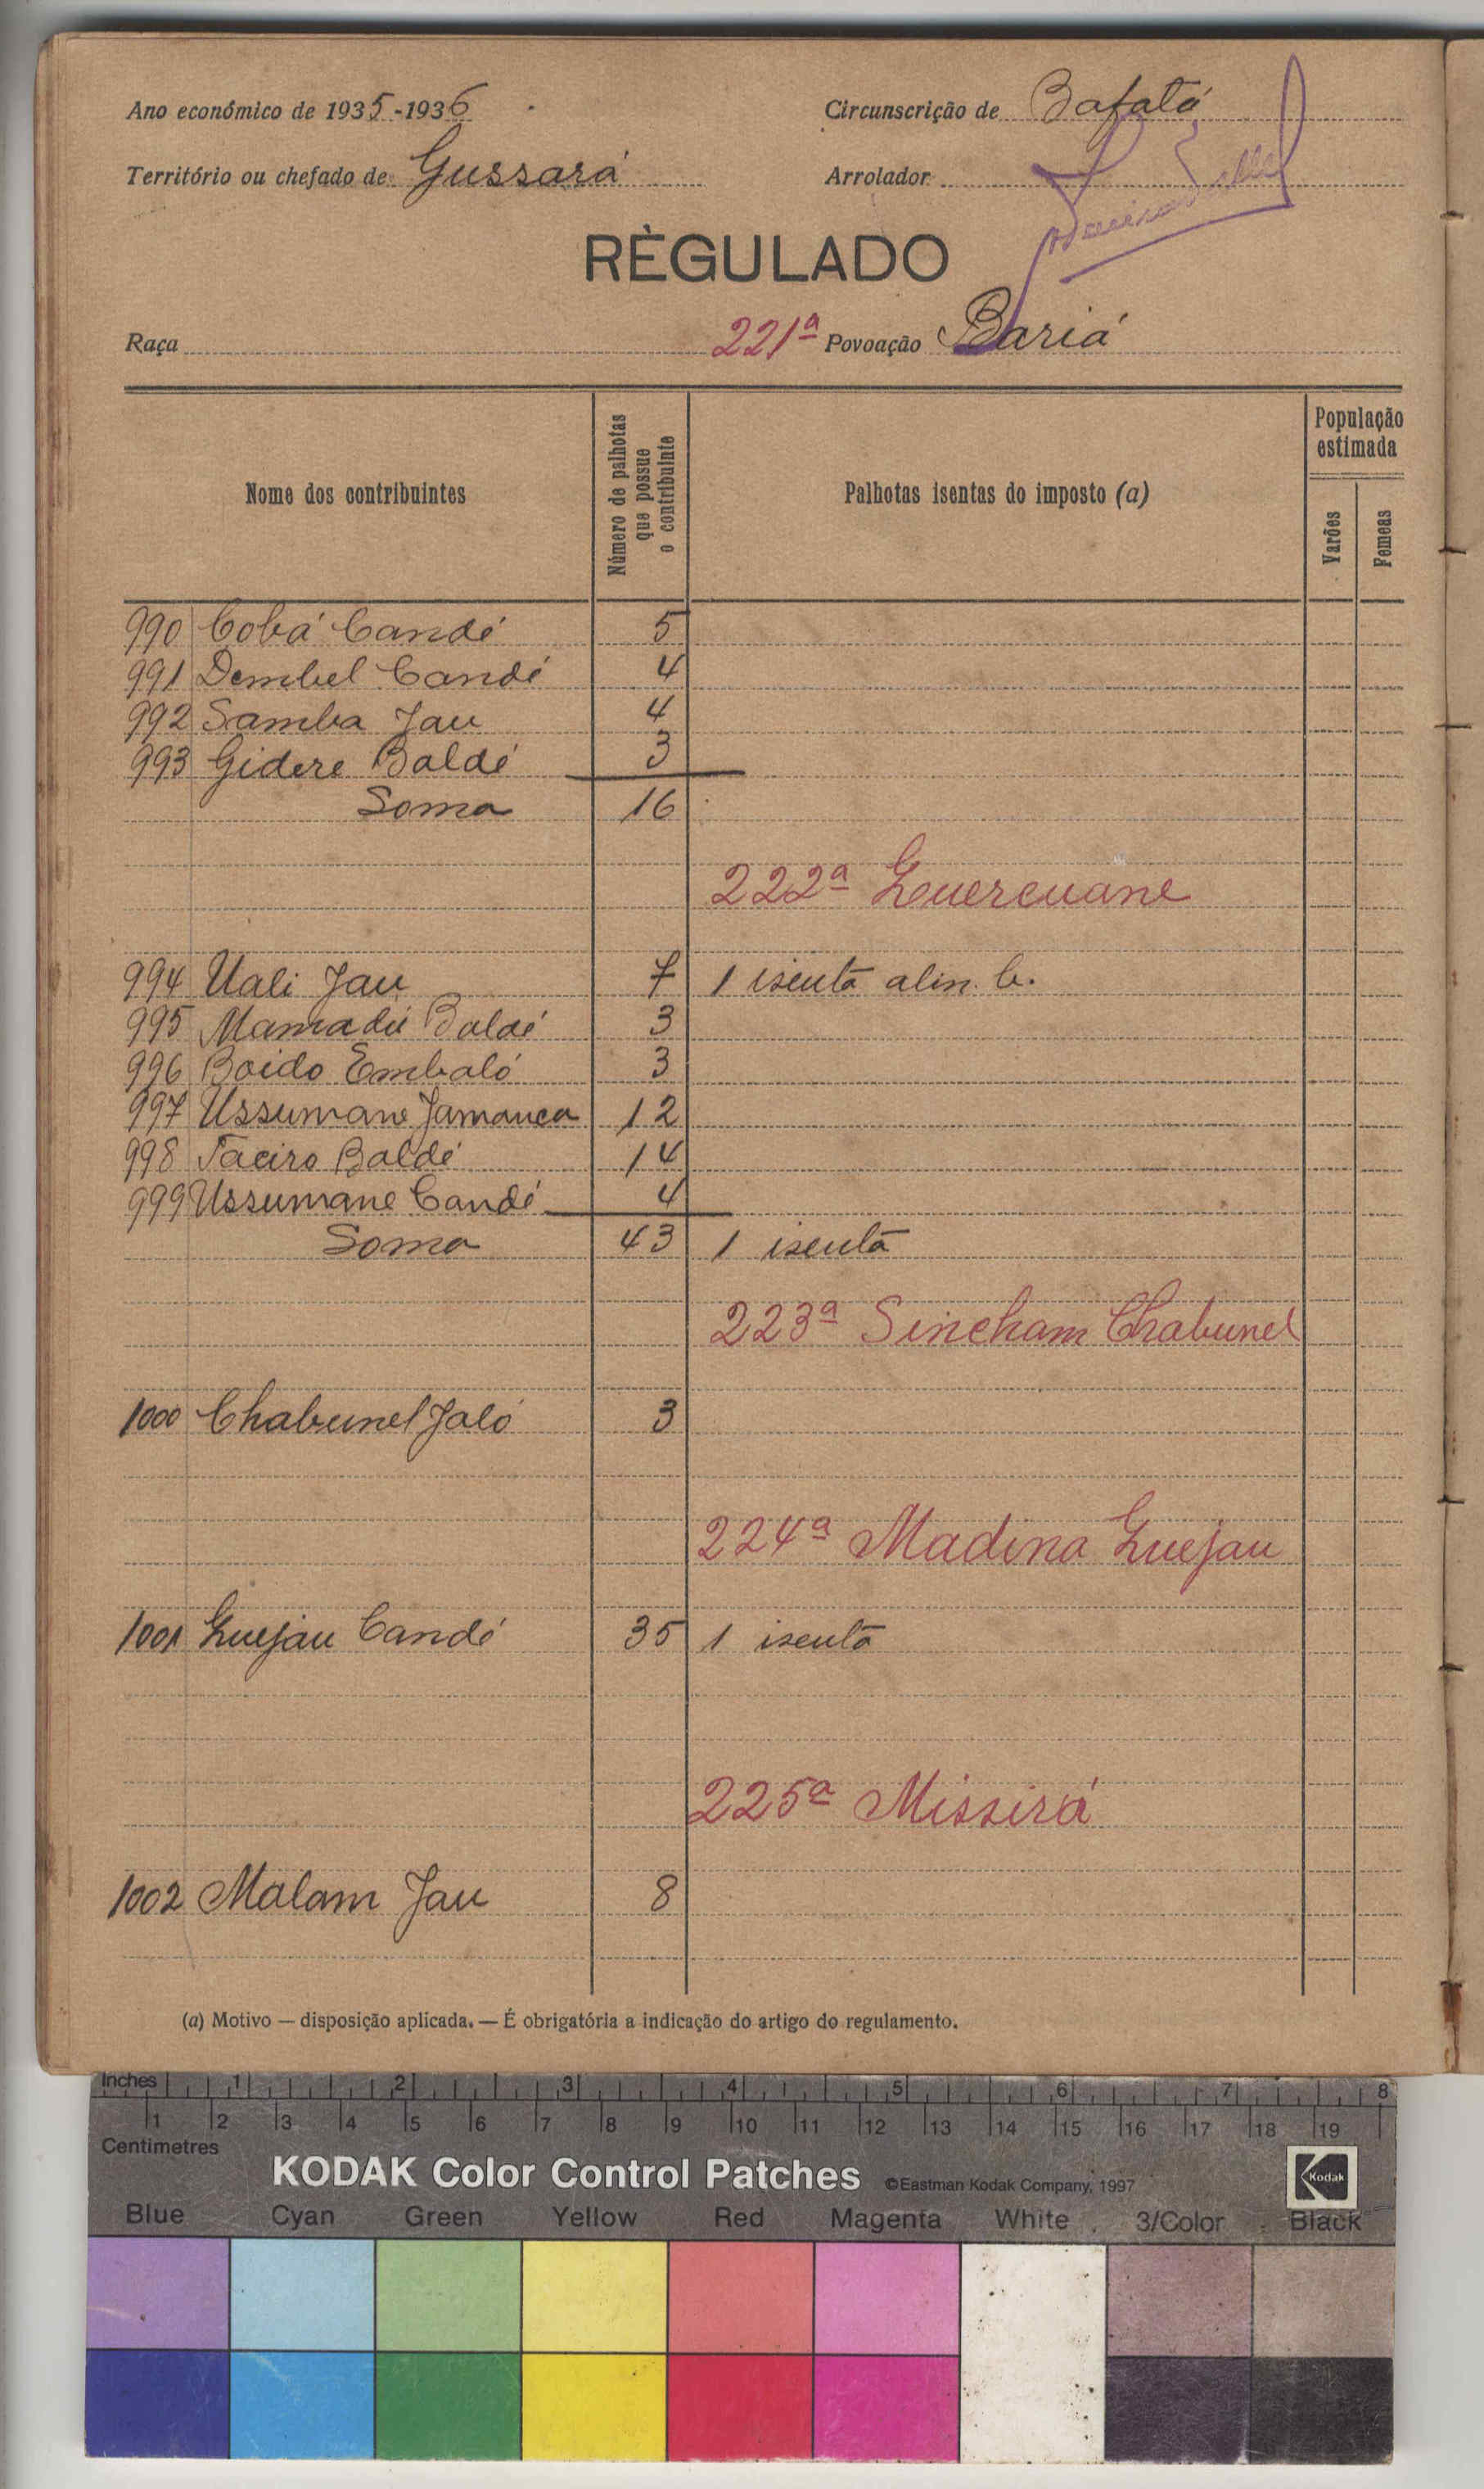 Ano económico de 1935-1936
Circunscrição de Bafatá
Território ou chefado de Gussará
Arrolador
RÈGULADO
Raça 221ª Povoação Bariá
Nome dos contribuintes
Número de palhotas que possue o contribuinte
Palhotas isentas do imposto (a)
População estimada
Varões
Femeas
990 Cobá Candé 5
991 Dembel Candé 4
992 Samba Jau 4
993 Gidere Baldé 3
Soma 16
222ª Guercuane
994 Uali Jau 7 1 isenta alin. b.
995 Mamadú Baldé 3
996 Boido Embaló 3
997 Ussumane Jamanca 12
998 Taciro Baldé 14
999 Ussumane Candé 4
Soma 43 1 isenta
223ª Sincham Chabunel
1000 Chabunel Jaló 3
224ª Madina Guejau
1001 Guejau Candé 35 1 isenta
225ª Missirá
1002 Malam Jau 8
(a) Motivo — disposição aplicada. — É obrigatória a indicação do artigo do regulamento.
Inches 1 2 3 4 5 6 7 8
1 2 3 4 5 6 7 8 9 10 11 12 13 14 15 16 17 18 19
Centimetres
KODAK Color Control Patches ©Eastman Kodak Company, 1997 Kodak
Blue Cyan Green Yellow Red Magenta White 3/Color Black